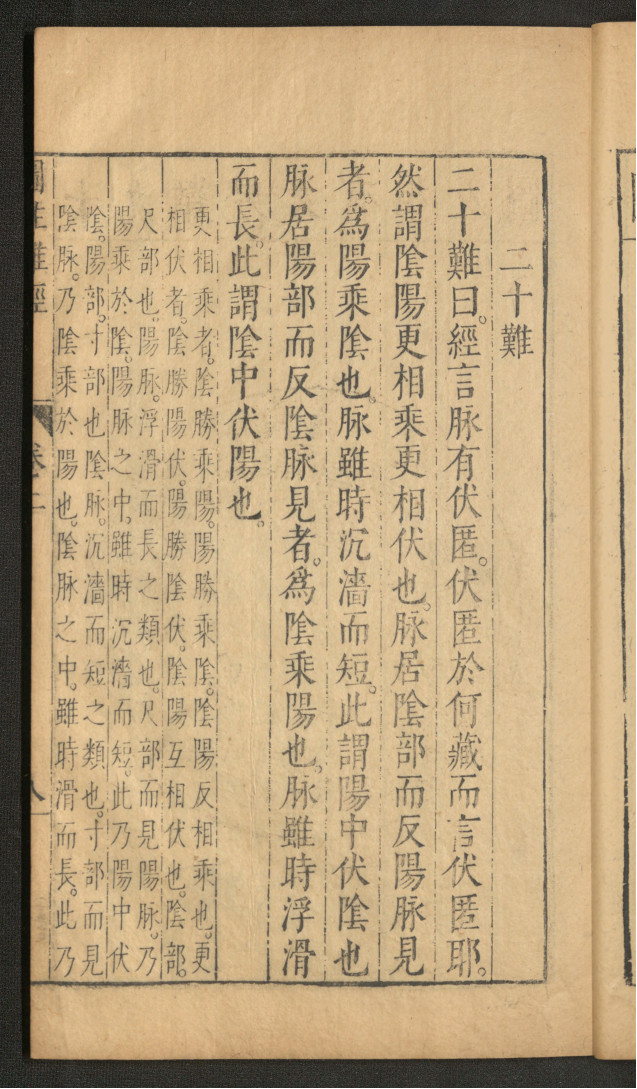 二十難
二十難曰。經言脉有伏匿。伏匿於何藏而言伏匿耶。
然謂陰陽更相乘更相伏也。脉居陰部而反陽脉見
者。爲陽乘陰也。脉雖時沉濇而短。此謂陽中伏陰也
脉居陽部而反陰脉見者。爲陰乘陽也。脉雖時浮滑
而長。此謂陰中伏陽也。
更相乘者。陰勝乘陽。陽勝乘陰。陰陽反相乘也。更
相伏者。陰勝陽伏。陽勝陰伏。陰陽互相伏也。陰部。
尺部也。陽脉。浮滑而長之類也。尺部而見陽脉。乃
陽乘於陰。陽脉之中。雖時沉濇而短。此乃陽中伏
陰。陽部。寸部也。陰脉。沉濇而短之類也。寸部而見
陰脉。乃陰乘於陽也。陰脉之中。雖時滑而長。此乃
圖註難經
卷二
八